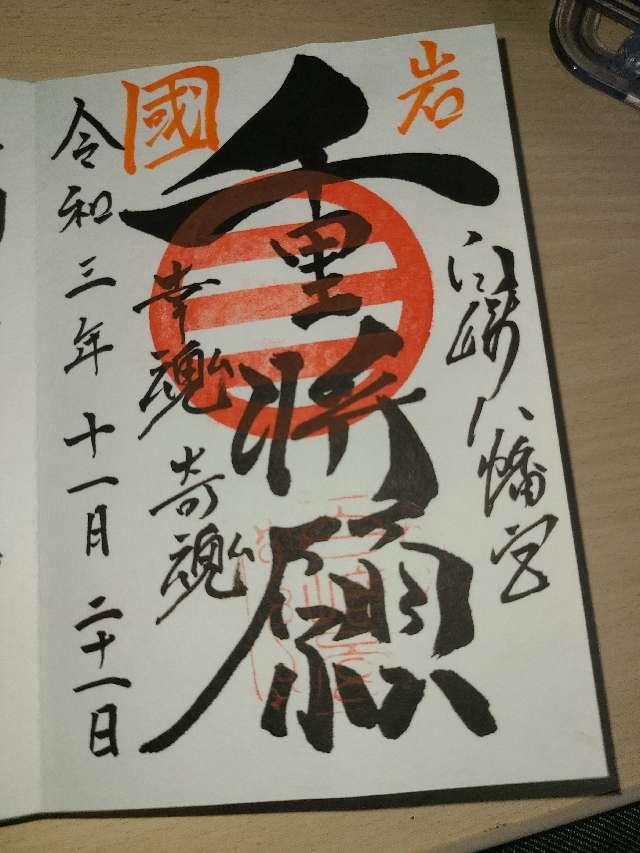 岩國
白崎八幡宮
千里将願
幸魂 奇魂
令和三年十一月二十一日